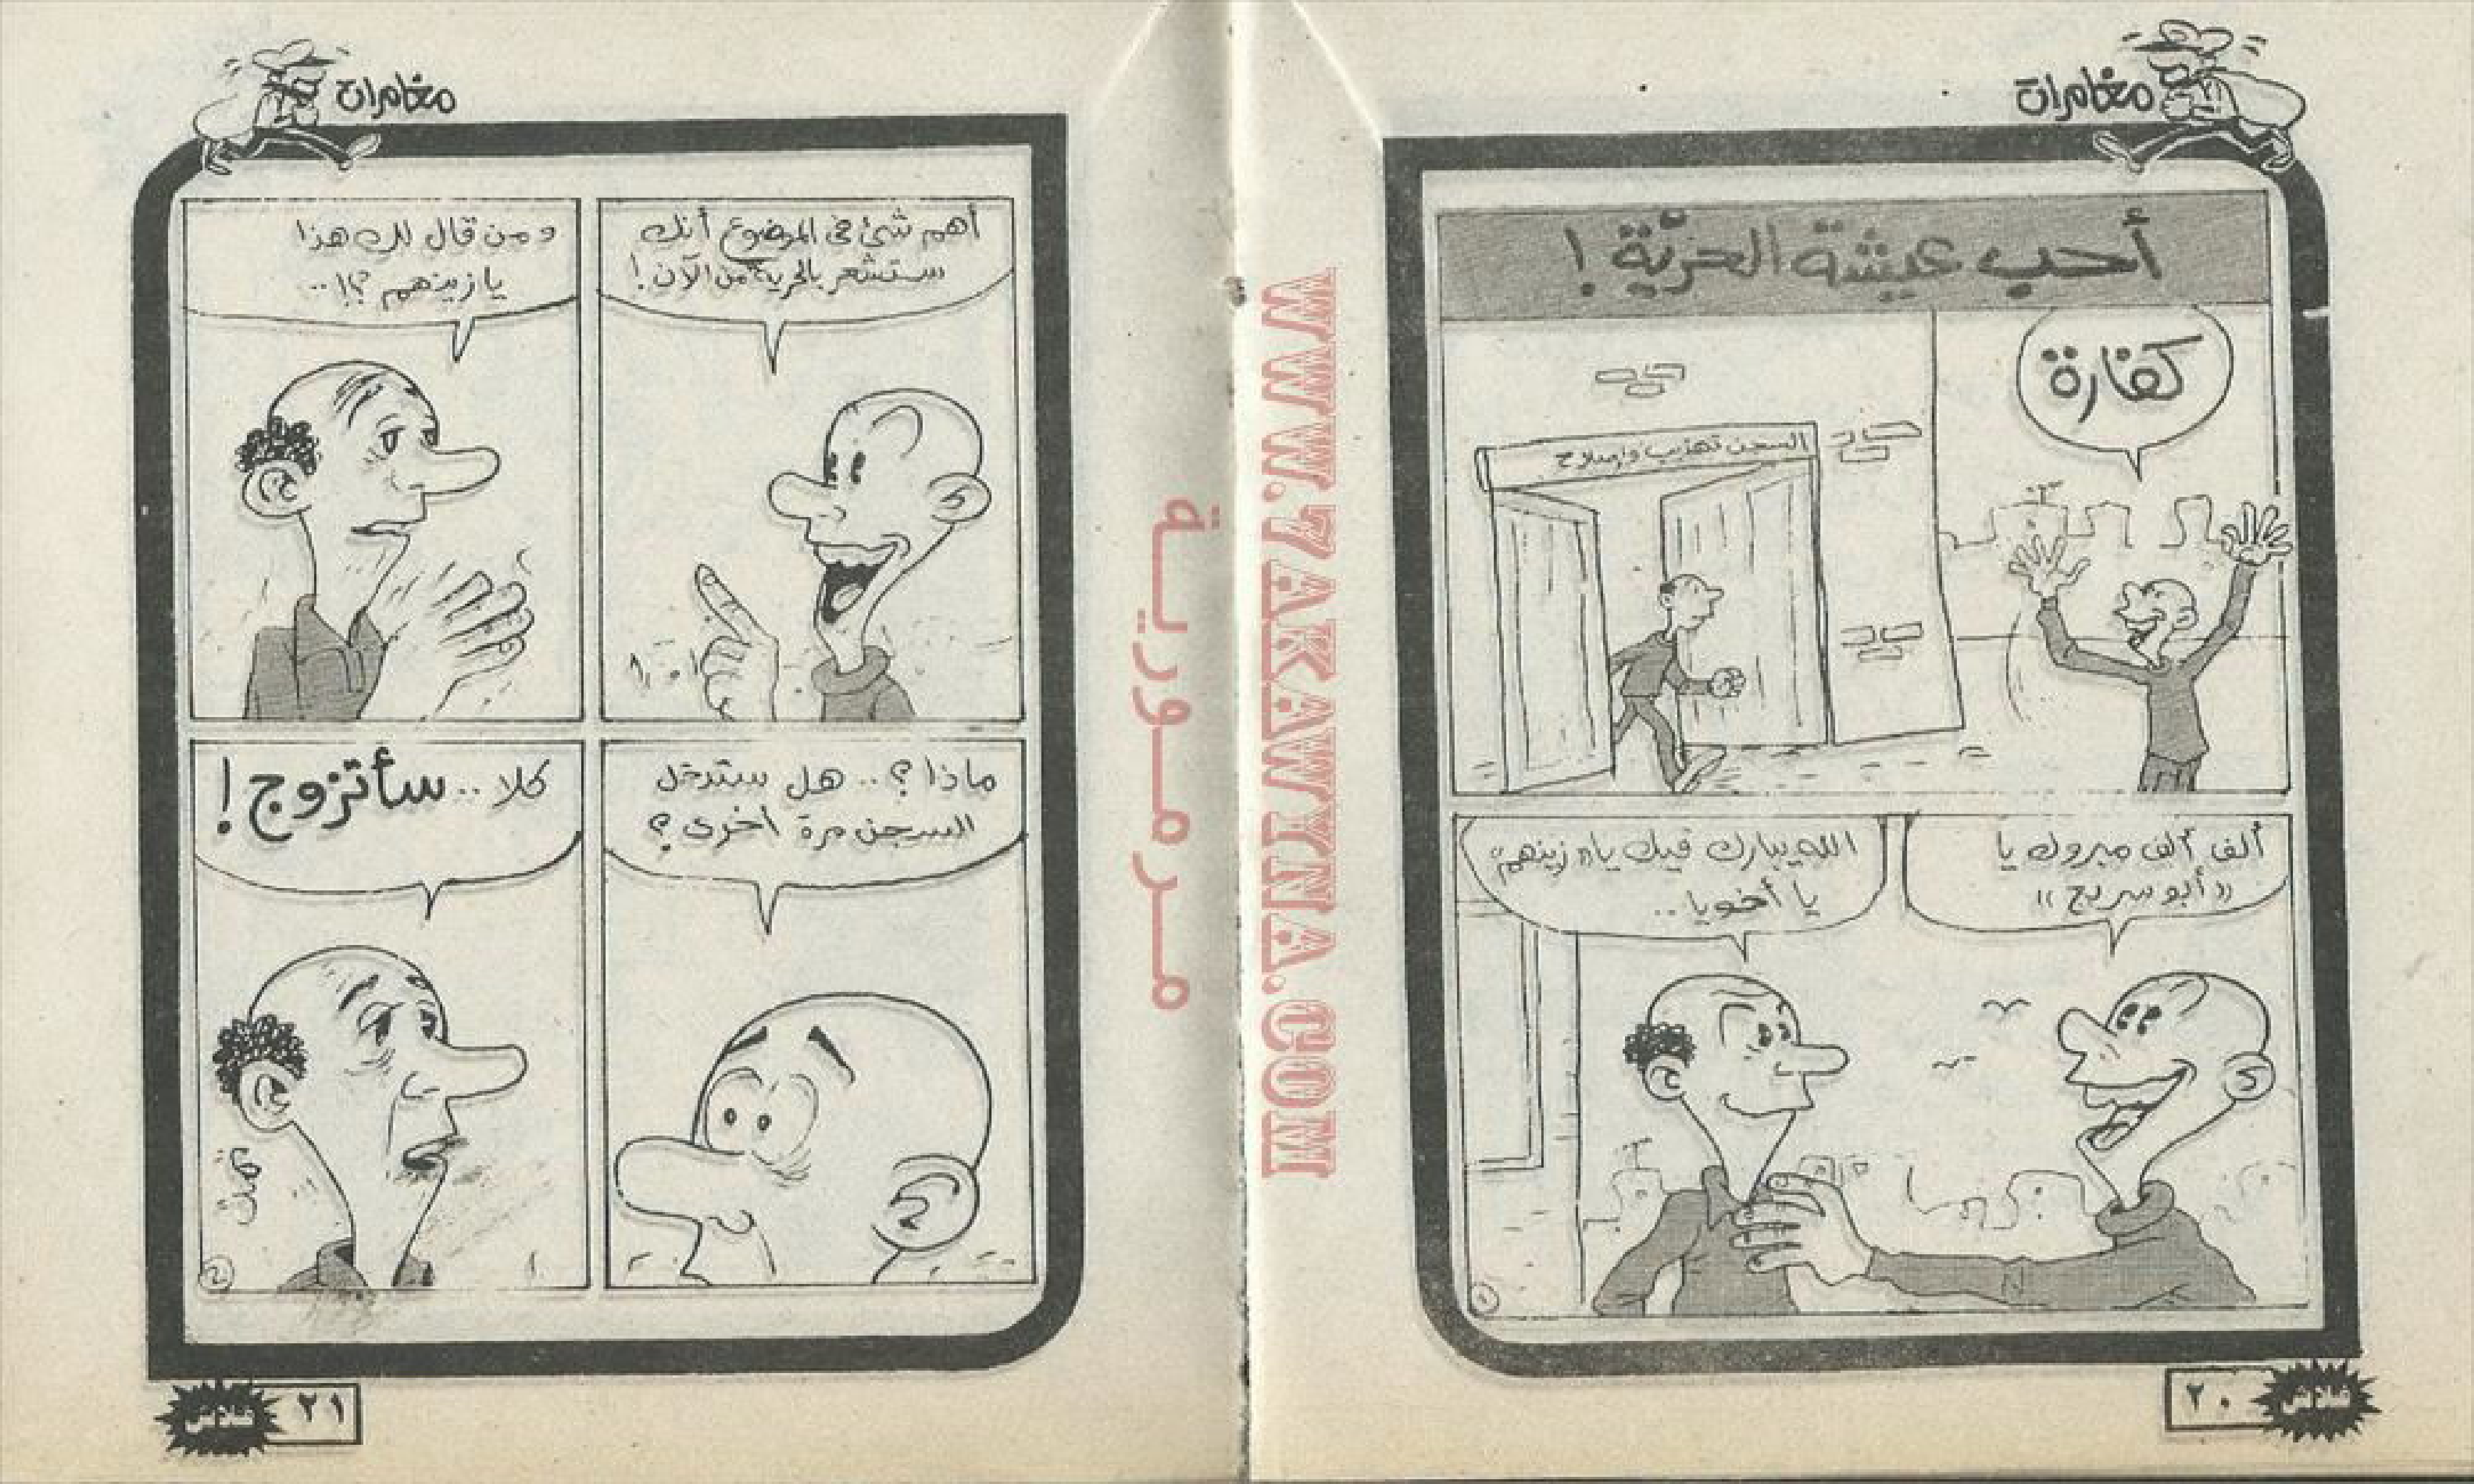 مغامرات
أحب عيشة الحرّية !
كفارة
السجن تهذيب وإصلاح
ألف ألف مبروك يا
«أبو سريع»
الله يبارك فيك يا «زينهم»
يا أخويا ..
٢٠
فلاش
مغامرات
أهم شئ في الموضوع أنك
ستشعر بالحرية من الآن !
و من قال لك هذا
يا زينهم ؟! ..
ماذا ؟ .. هل ستدخل
السجن مرة أخرى ؟
كلا .. سأتزوج !
٢١
فلاش
WWW.7AKAWINA.COM
مرمورية